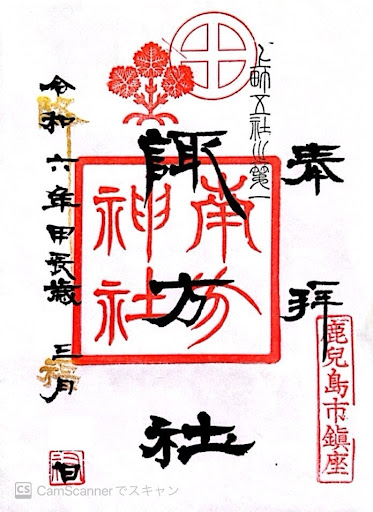 奉拝
鹿兒島市鎮座
上町五社之第一
諏方社
南方
神社
令和六年甲辰歳 三月 日
CS CamScannerでスキャン